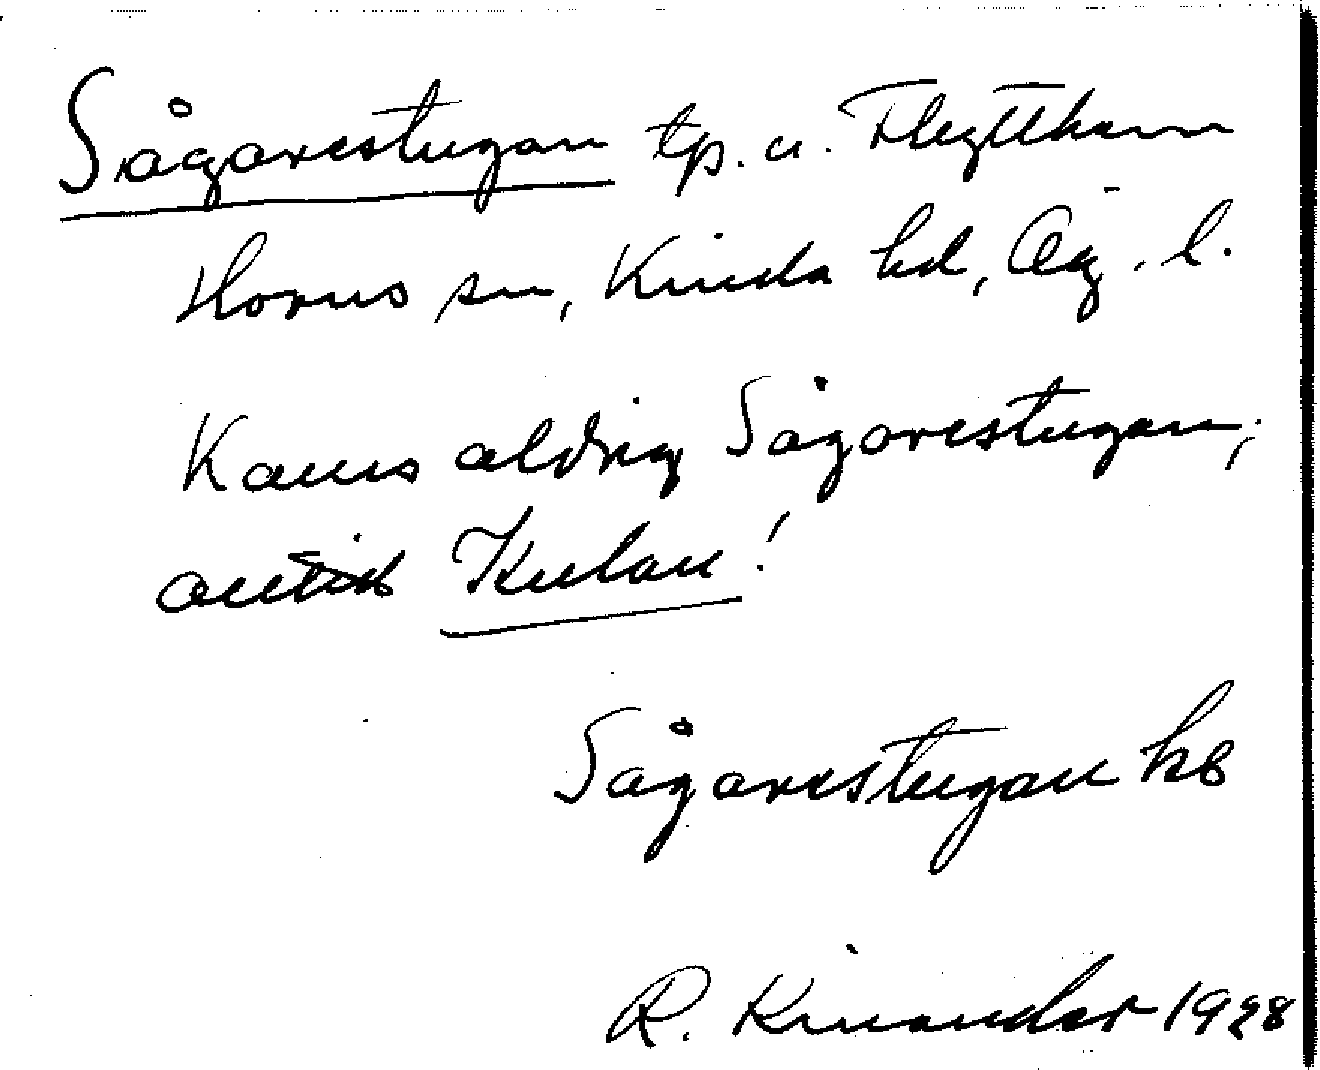 Sågarestugan tp. u. Flytthem
Horns sn, Kinda hd, Ög. l.
Kallas aldrig Sågarestugan,
utan Kulan!
Sågarestugan kb
R. Kinander 1928